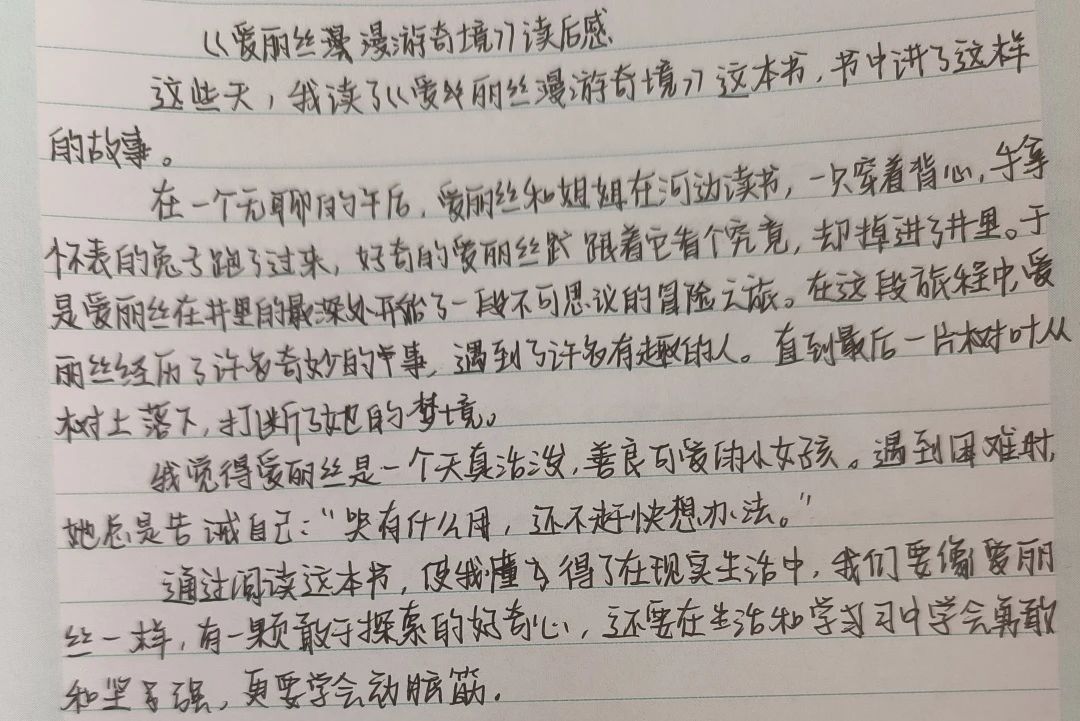 《爱丽丝漫漫游奇境》读后感
这些天，我读了《爱丝丽丝漫游奇境》这本书，书中讲了这样
的故事。
在一个无聊的午后，爱丽丝和姐姐在河边读书，一只穿着背心，手拿
怀表的兔子跑了过来，好奇的爱丽丝跟着它看个究竟，却掉进了井里。于
是爱丽丝在井里的最深处开始了一段不可思议的冒险之旅。在这段旅程中，爱
丽丝经历了许多奇妙的事，遇到了许多有趣的人。直到最后一片树叶从
树上落下，打断了她的梦境。
我觉得爱丽丝是一个天真活泼，善良可爱的小女孩。遇到困难时，
她总是告诫自己：“哭有什么用，还不赶快想办法。”
通过阅读这本书，使我懂得了在现实生活中，我们要像爱丽
丝一样，有一颗敢于探索的好奇心，还要在生活和学习中学会勇敢
和坚强，更要学会动脑筋.